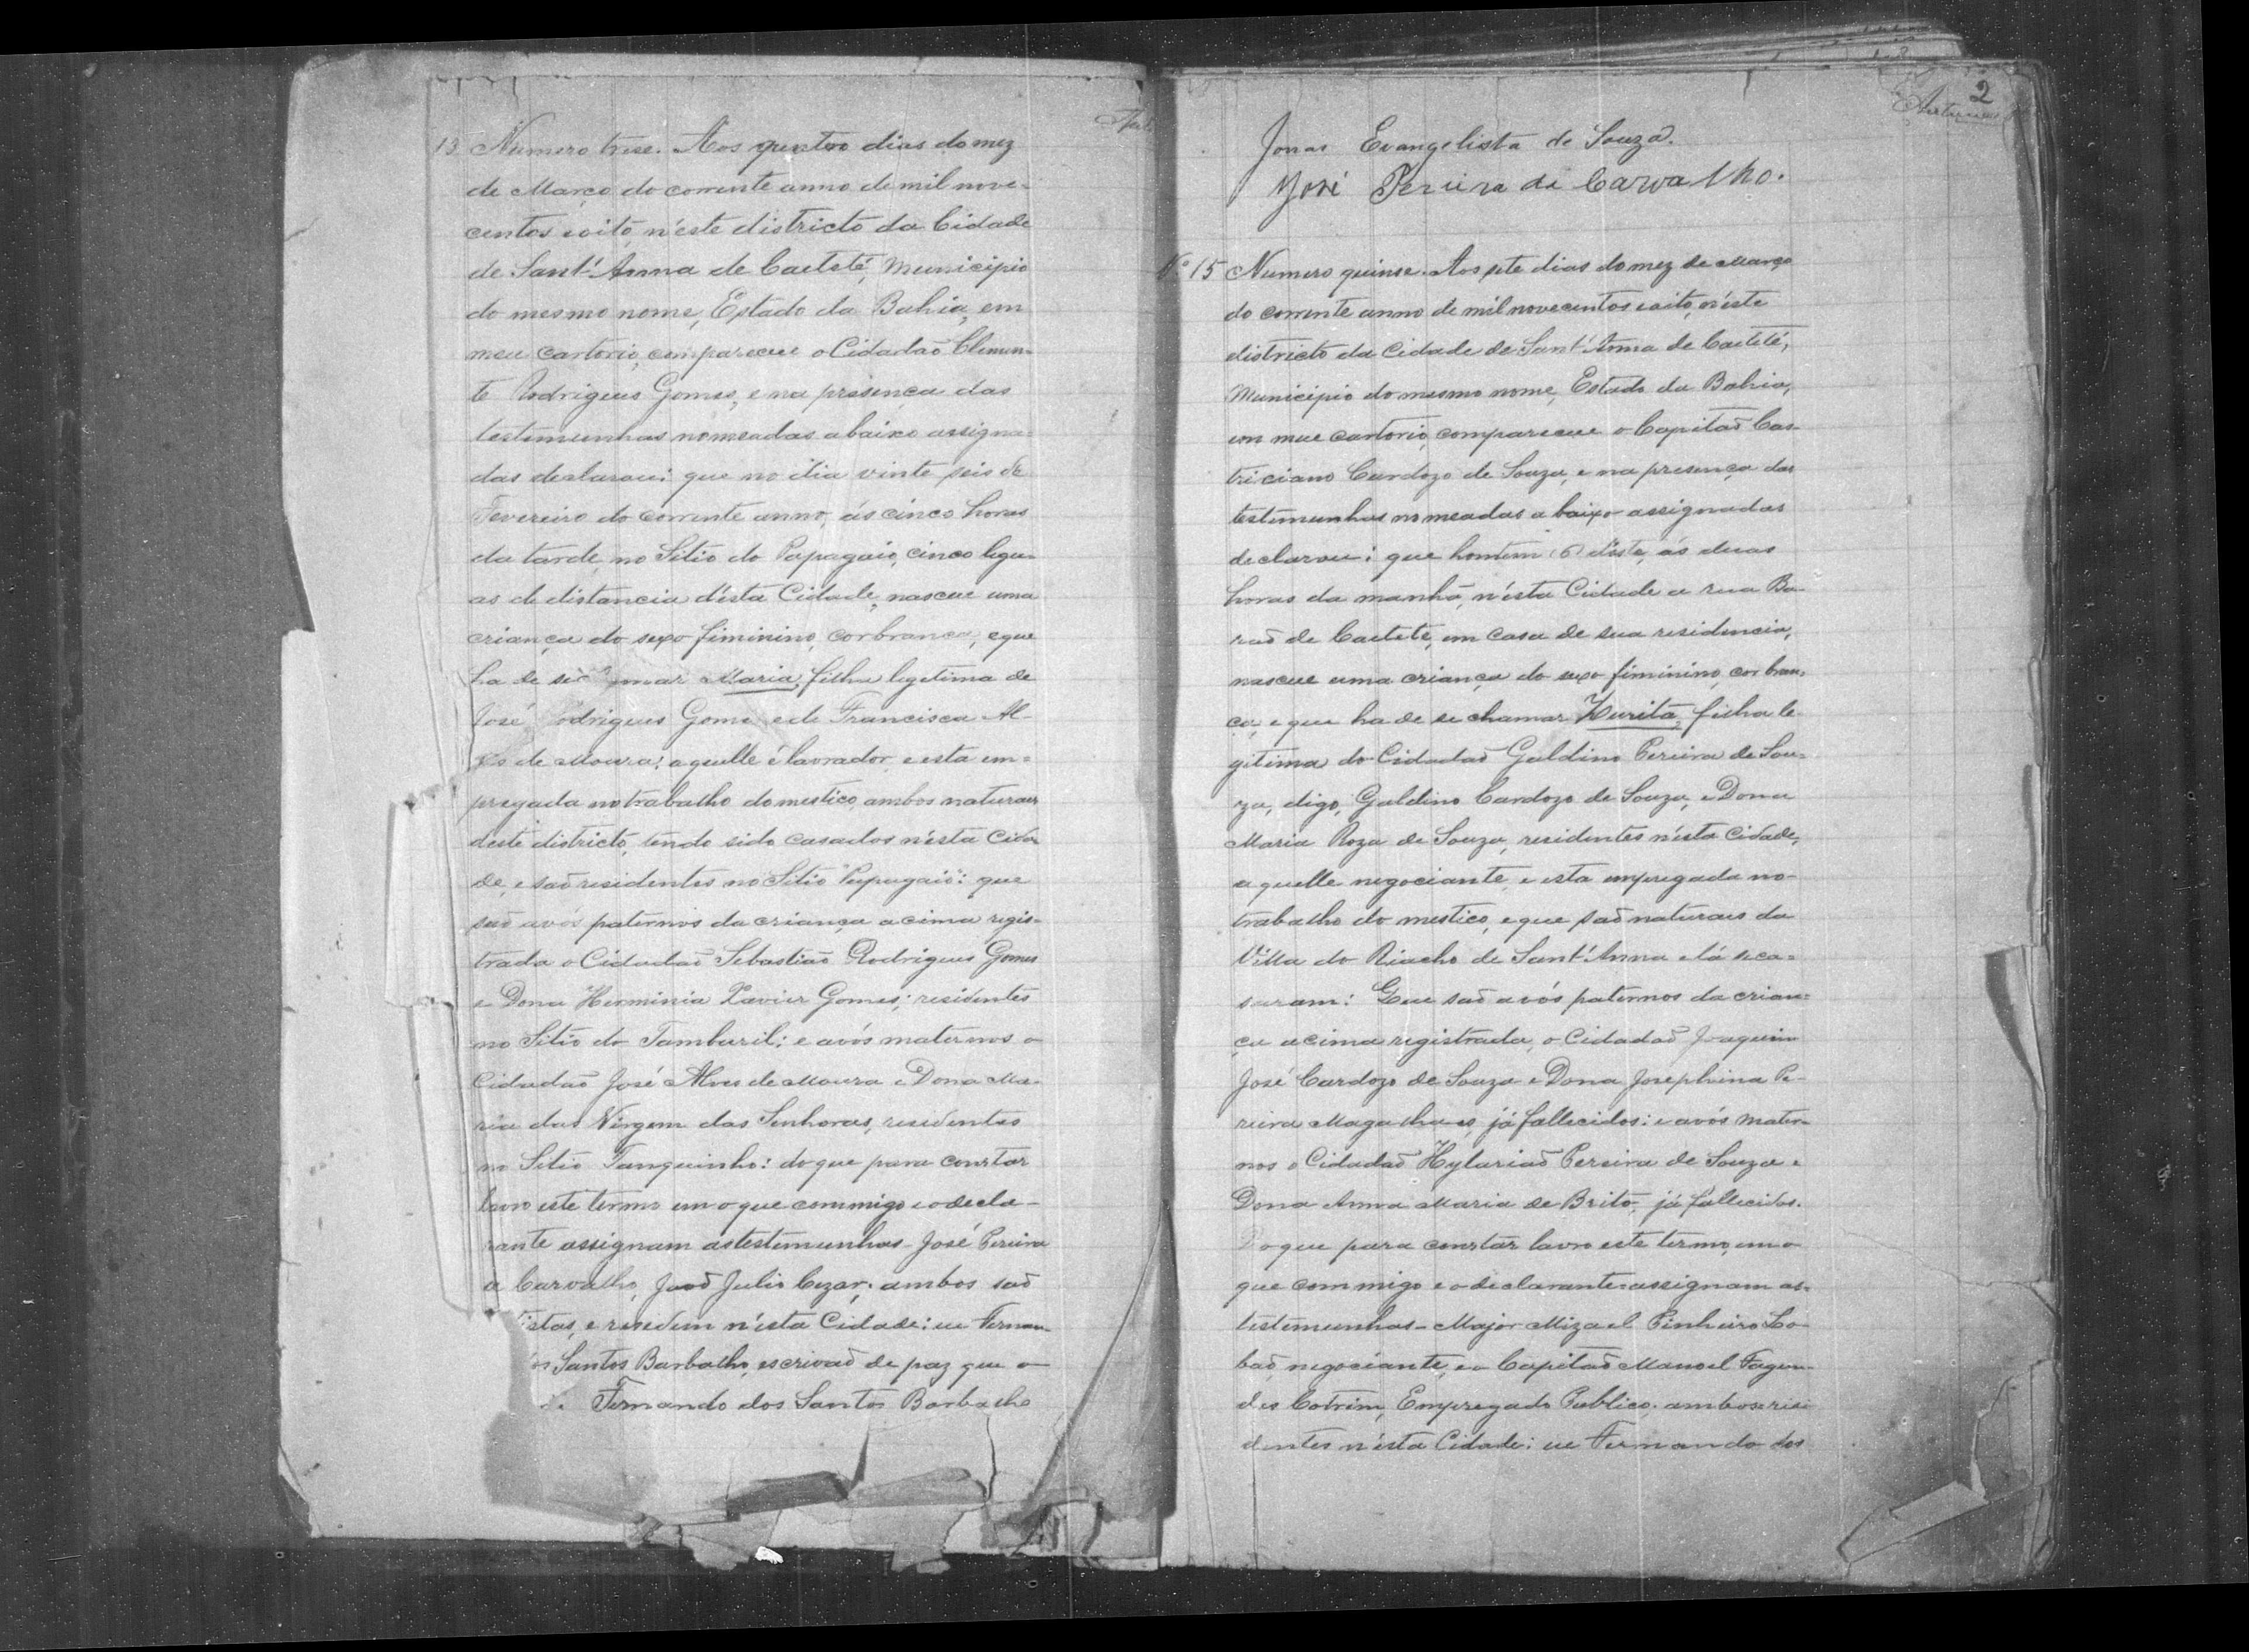 13 Numero trese. Aos quatro dias do mez
de Março do corrente anno de mil nove-
centos e oito, n'este districto da Cidade
de Sant'Anna de Caeteté, Municipio
do mesmo nome, Estado da Bahia, em
meu cartorio, compareceu o Cidadaõ Clemen-
te Rodrigues Gomes, e na presença das
testemunhas nomeadas abaixo assigna-
das declarou: que no dia vinte seis de
Fevereiro do corrente anno, ás cinco horas
da tarde, no Sitio do Papagaio, cinco legu-
as de distancia d'ésta Cidade, nasceu uma
criança do sexo fiminino, cor branca, e que
ha de se mar Maria, filha legetima de
José Rodrigues Gome e de Francisca Al-
de Moura; aquelle é lavrador, e esta em-
pregada no trabalho domestico, ambos naturaes
deste districto, tendo sido casados n'ésta Cida
de, e saõ residentes no Sitio "Papagaio": que
saõ avós paternos da criança acima regis-
trada o Cidadaõ Sebastiaõ Rodrigues Gomes
e Dona Herminia Xavier Gomes; residentes
no Sitio do Tamburil; e avós maternos o
Cidadaõ José Alves de Moura e Dona Ma-
ria das Virgem das Senhoras, residentes
no Sitio Tanquinho: do que para constar
lavro este termo em o que commigo e o decla-
rante assignam as testemunhas José Pereira
a Carvalho, Joaõ Julio Cezar; ambos saõ
istas, e residem n'ésta Cidade: eu Fernan-
os Santos Barbalho, escrivaõ de paz que o
Fernando dos Santos Barbalho
2
Jonas Evangelista de Souza.
José Pereira de Carvalho.
Nº 15 Numero quinse. Aos sete dias do mez de Março
do corrente anno de mil novecentos e oito, n'éste
districto da Cidade de Sant'Anna de Caeteté,
Municipio do mesmo nome, Estado da Bahia,
em meu cartorio, compareceu o Capitaõ Cas-
triciano Cardozo de Souza, e na presença das
testemunhas nomeadas abaixo assignadas
declarou: que hontem (6) d'éste, ás duas
horas da manhã, n'ésta Cidade a rua Ba-
raõ de Caeteté, em casa de sua residencia,
nasceu uma criança do sexo fiminino, cor bran-
ca, e que ha de se chamar Zurita, filha le-
gitima do Cidadaõ Galdino Pereira de Sou-
za, digo, Galdino Cardozo de Souza, e Dona
Maria Roza de Souza, residentes n'ésta Cidade,
aquelle negociante, e esta empregada no
trabalho domestico, e que saõ naturaes da
Villa do Riacho de Sant'Anna e lá se ca-
saram: Que saõ avós paternos da crian-
ça acima registrada, o Cidadaõ Joaquim
José Cardozo de Souza e Dona Josephina Pe-
reira Magalhaes, já fallecidos: e avós mater-
nos o Cidadaõ Hylariaõ Pereira de Souza e
Dona Anna Maria de Brito, já fallecidos.
Do que para constar lavro este termo, em o
que commigo e o declarante assignam as
testemunhas - Major Mizael Pinheiro Lo-
baõ, negociante, e o Capitaõ Manoel Fagun-
des Cotrim, Empregado Publico; ambos resi
dentes n'ésta Cidade: eu Fernando dos